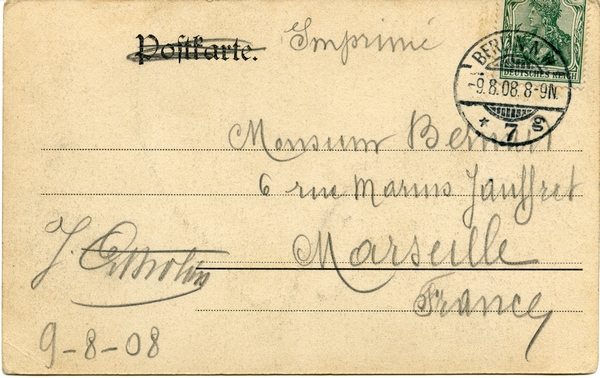 Postkarte. Imprimé
BERLIN N.W.
-9.8.08.8-9N.
* 7 S
DEUTSCHES REICH
Monsieur
6 rue Marius Jauffret
Marseille
France
J.
9-8-08